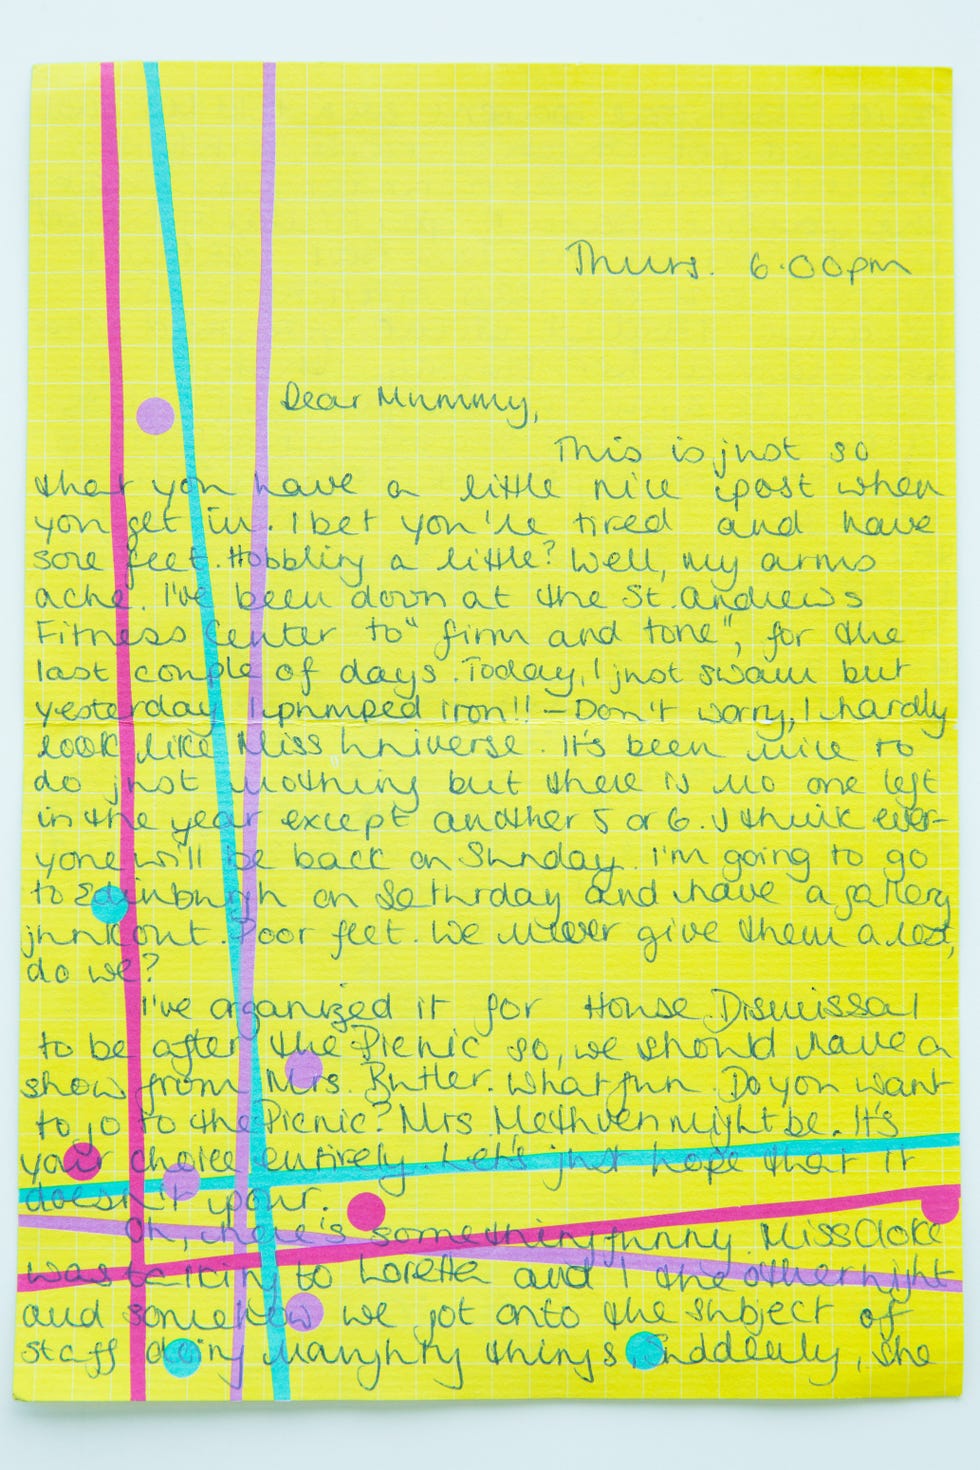 Thurs. 6.00pm
Dear Mummy,
This is just so
that you have a little nice post when
you get in. I bet you're tired and have
sore feet. Hobbling a little? Well, my arms
ache. I've been down at the St. Andrews
Fitness Center to "firm and tone", for the
last couple of days. Today, I just swam but
yesterday I pumped iron!! – Don't worry, I hardly
look like Miss Universe. It's been nice to
do just nothing but there is no one left
in the year except another 5 or 6. I think ever-
yone will be back on Sunday. I'm going to go
to Edinburgh on Saturday and have a gallery
junkout. Poor feet. We never give them a rest,
do we?
I've organized it for House Dismissal
to be after the Picnic so, we should have a
show from Mrs. Butler. What fun. Do you want
to go to the Picnic? Mrs Methven might be. It's
your choice entirely. Let's just hope that it
doesn't pour.
Oh, there's something funny. Miss Cloke
was talking to Loretta and I the other night
and somehow we got onto the subject of
staff doing naughty things. Suddenly, she